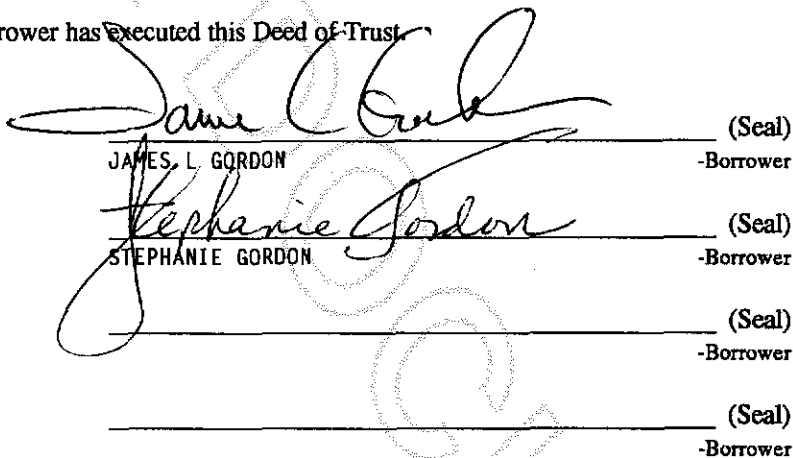 rower has executed this Deed of Trust.
James L Gordon (Seal)
JAMES L GORDON -Borrower
Stephanie Gordon (Seal)
STEPHANIE GORDON -Borrower
(Seal)
-Borrower
(Seal)
-Borrower